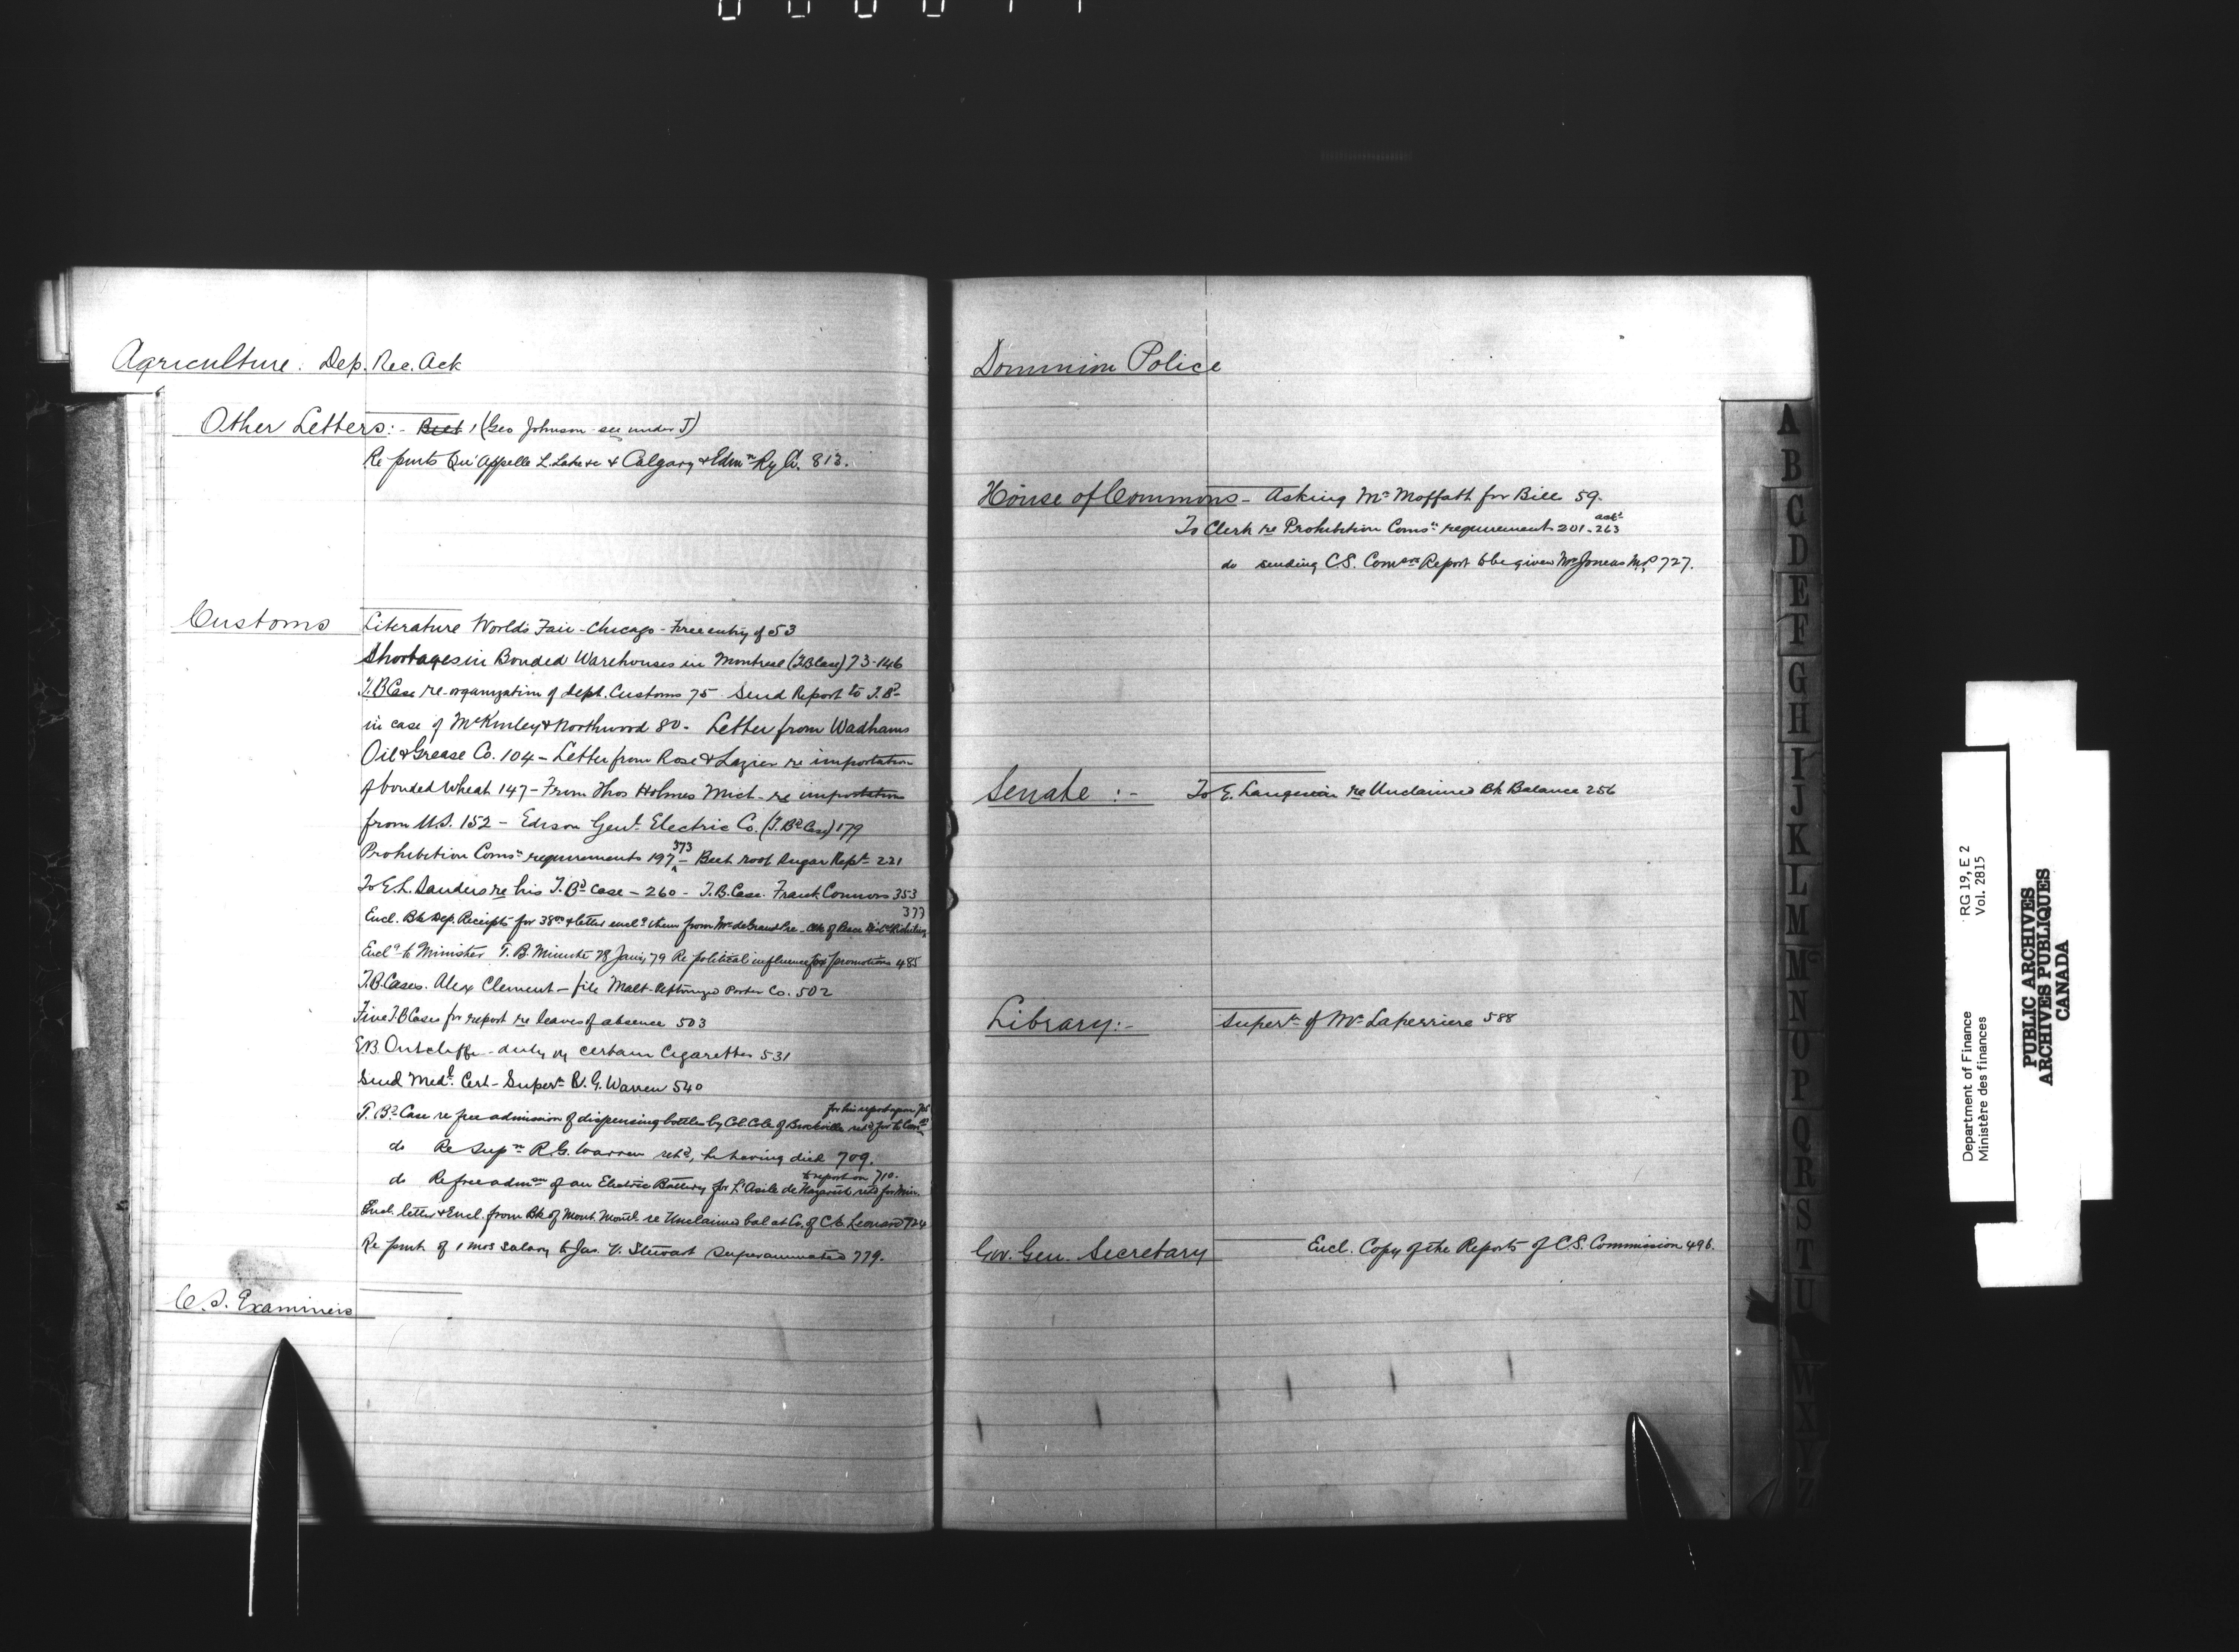 Agriculture: Dep. Rec. Ack
Other Letters:- 1 (Geo Johnson see under J)
Re pmts Qu'Appelle L. Lake &c & Calgary & Edmn Ry Co. 813.
Customs
Literature World's Fair - Chicago - Free entry of 53
Shortages in Bonded Warehouses in Montreal (T.B Case) 73-146
T.B Case re-organization of Dept. Customs 75 Send Report to T. Bd
in case of McKinley & Northwood 80 - Letter from Wadhams
Oil & Grease Co. 104 - Letter from Rose & Lazier re importation
of bonded Wheat 147 - From Thos Holmes Mich - re importation
from U.S. 152 - Edison Genl. Electric Co. (T. Bd Case) 179
Prohibition Comsn requirements 197 373 - Beet root Sugar Rept 221
To E.L. Sanders re his T. Bd Case - 260 - T.B. Case. Frank Connors 353
Encl. Bk Dep. Receipts for 38 & letter enclg them from Mr de Grand Pre - Clk of Peace Richelieu 377
Encl to Minister T.B. Minute 28 Jany 79 Re political influence for promotions 485
T.B. Cases. Alex Clement - file Malt Porter Co. 502
Five T.B Cases for report re leaves of absence 503
E.B. Outcliffe - duty on certain Cigarettes 531
Send Medl. Cert - Super. R.G. Warren 540
for his report upon 708
T. Bd Case re free admission of dispensing bottles by Col Cole of Brockville retd for to Comr
do Re Supn R.G. Warren retd, he having died 709.
to report on 710.
do Re free admsn of an Electric Battery for L'Asile de Nazareth retd for Min.
Encl. letter & Encl. from Bk of Mont. Montl. re Unclaimed bal at Cr. of C.E. Leonard 724
Re pmt of 1 mos salary to Jas. Y. Stewart Superannuated 779.
C.S. Examiners
Dominion Police
House of Commons - Asking Mr Moffatt for Bill 59.
To Clerk re Prohibition Comsn requirement 201 - ackd 263
do sending C.S. Comsn Report to be given Mr Joncas M.P. 727.
Senate :- To E. Langevin re Unclaimed Bk Balance 256
Library:- Super of Mr Laperriere 588
Gov. Gen. Secretary Encl. Copy of the Reports of C.S. Commission 496.
A
B
C
D
E
F
G
H
I
J
K
L
M
Mc
N
O
P
Q
R
S
T
U
W
X
Y
Z
Department of Finance RG 19, E 2
Ministère des finances Vol. 2815
PUBLIC ARCHIVES
ARCHIVES PUBLIQUES
CANADA